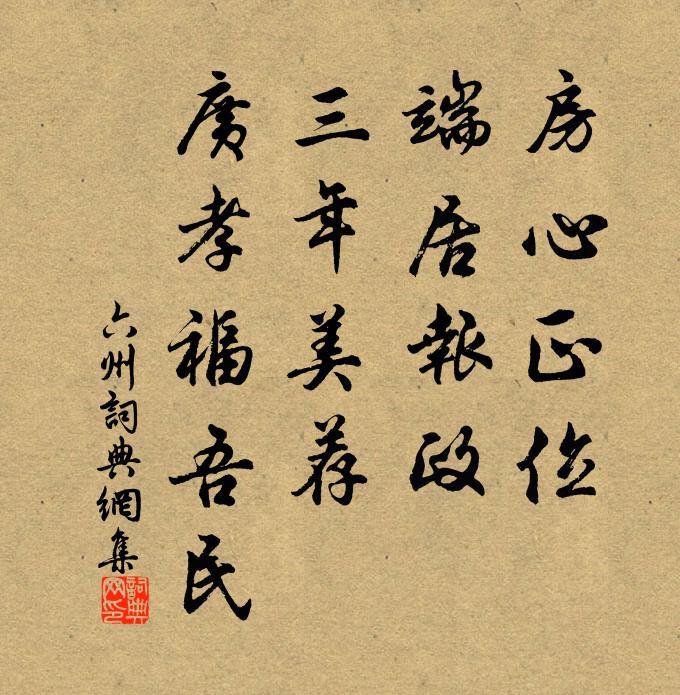 房心正位
端居報政
三年美荐
廣孝福吾民
六州詞典網集
詞典
网印